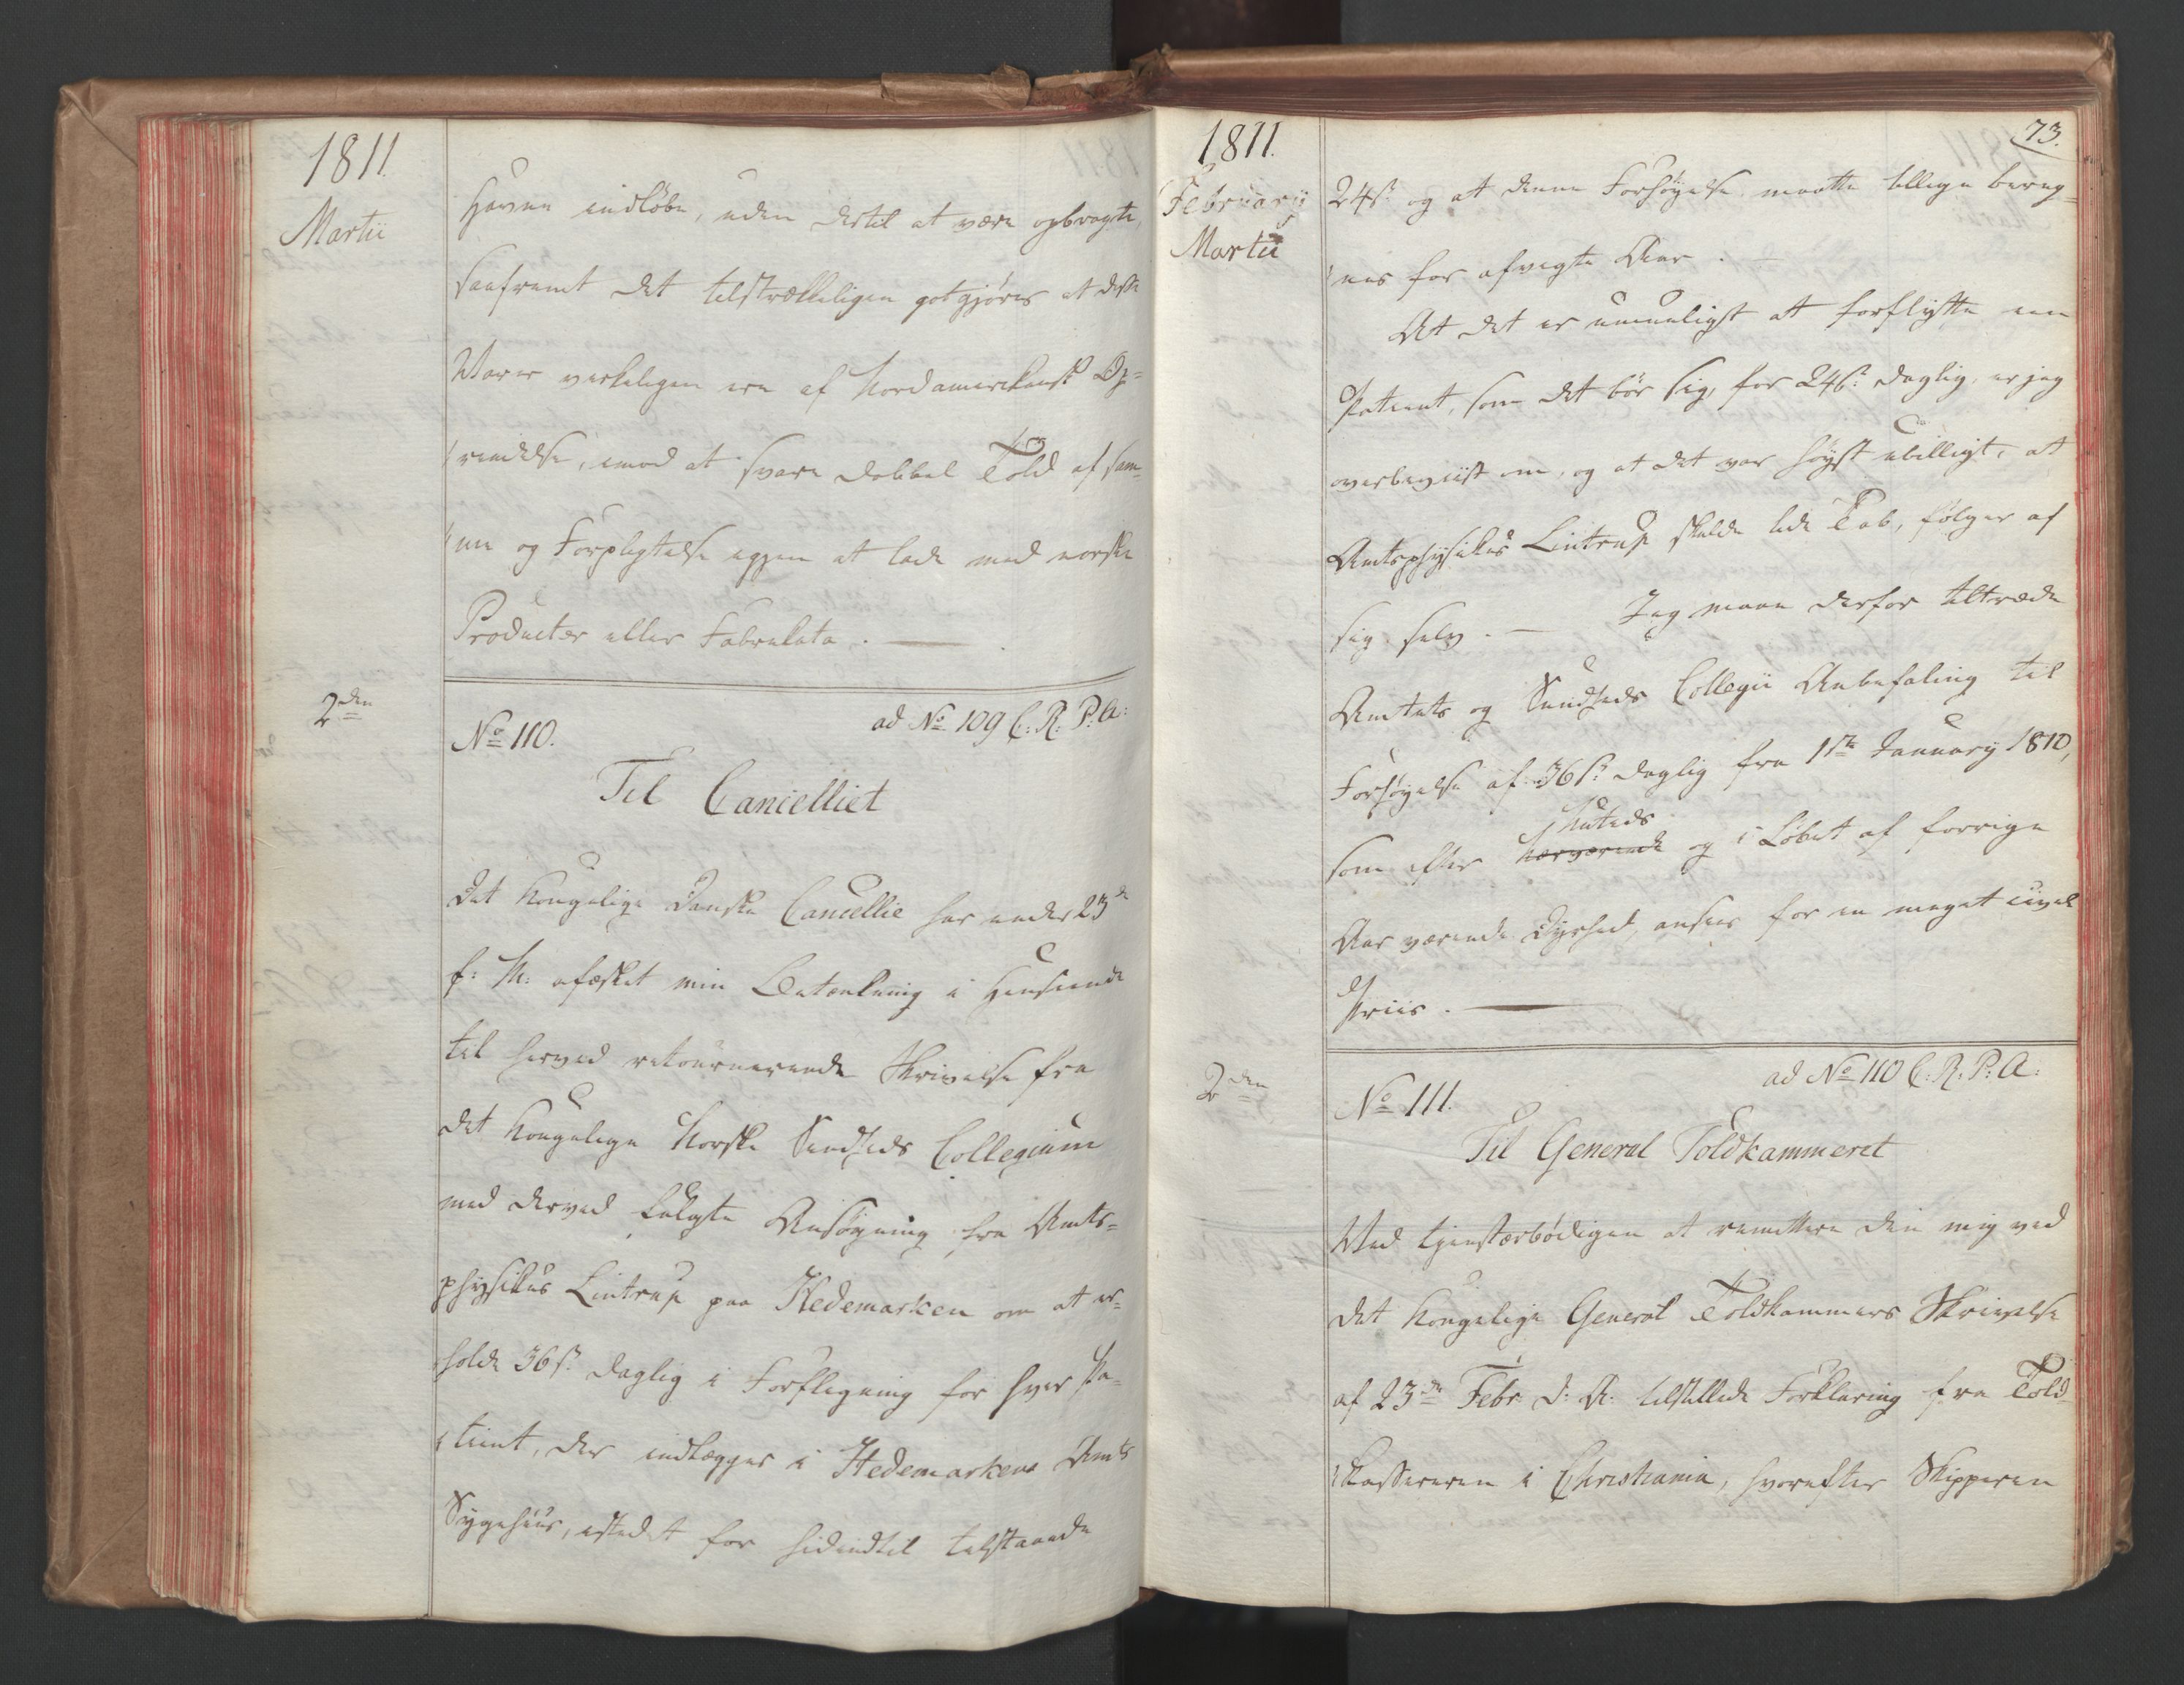 1811.
Martii
Havne indløbe, uden dertil at være opbragte,
saafremt det tilstrækkeligen godtgjøres at disse
Varer verkeligen ere af Nordamerikansk Op-
rindelse, imod at svare dobbel Told af sam-
me og Forpligtelse igjen at lade med norske
Producter eller Fabrikata. —
2den
No 110.
ad No 109 C: R: P: A:
Til Cancelliet
Det Kongelige Danske Cancellie har under 23de
f: M: afæsket min Betænkning i Henseende
til hervedretournerende Skrivelse fra
det Kongelige Norske Sundheds Collegium
med derved fulgte Ansøgning fra Amts-
physikus Lintrup paa Hedemarken om at er-
holde 36 s. daglig i Forflegning for hver Pa-
tient, der indlægges i Hedemarkens Amts
Sygehuus, istedet for hidindtil tilstaaede
1811.
Februarij
Martii
73.
24 s. og at denne Forhøyelse maatte tillige bereg-
nes for afvigte Aar. —
At det er umueligt at forflytte en
Patient, som det bør sig, for 24 s: daglig, er jeg
overbeviist om, og at det var høyst ubilligt, at
Amtsphysikus Lintrup skulde lide Tab, følger af
sig selv. — Jeg maae derfor tiltræde
Amtets og Sundheds Collegii Anbefaling til
Forhøyelse af 36 s. daglig fra 1ste January 1810,
som efter nærværende og i Løbet af forrige
Nutids
Aar værende Dyrhed, ansees for en meget civil
Priis. —
2den
No 111.
ad No 110 C: R: P: A:
Til General Toldkammeret
Ved tjenstærbødigen at remittere den mig ved
det Kongelige General Toldkammers Skrivelse
af 23de Febr. d: A: tilstillede Forklaring fra Told-
kassereren i Christiania, hvorefter Skipperen